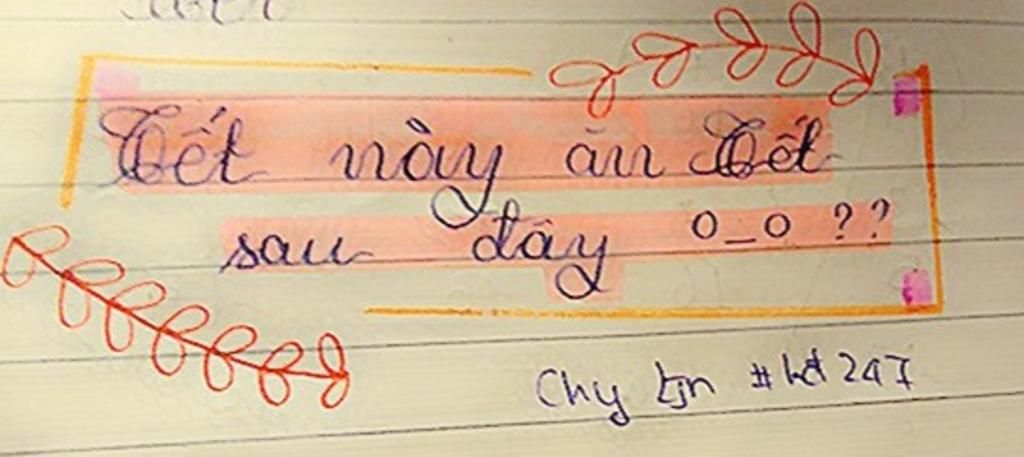 Tết này ăn Tết
sau đây O_O ??
Chy #hd247